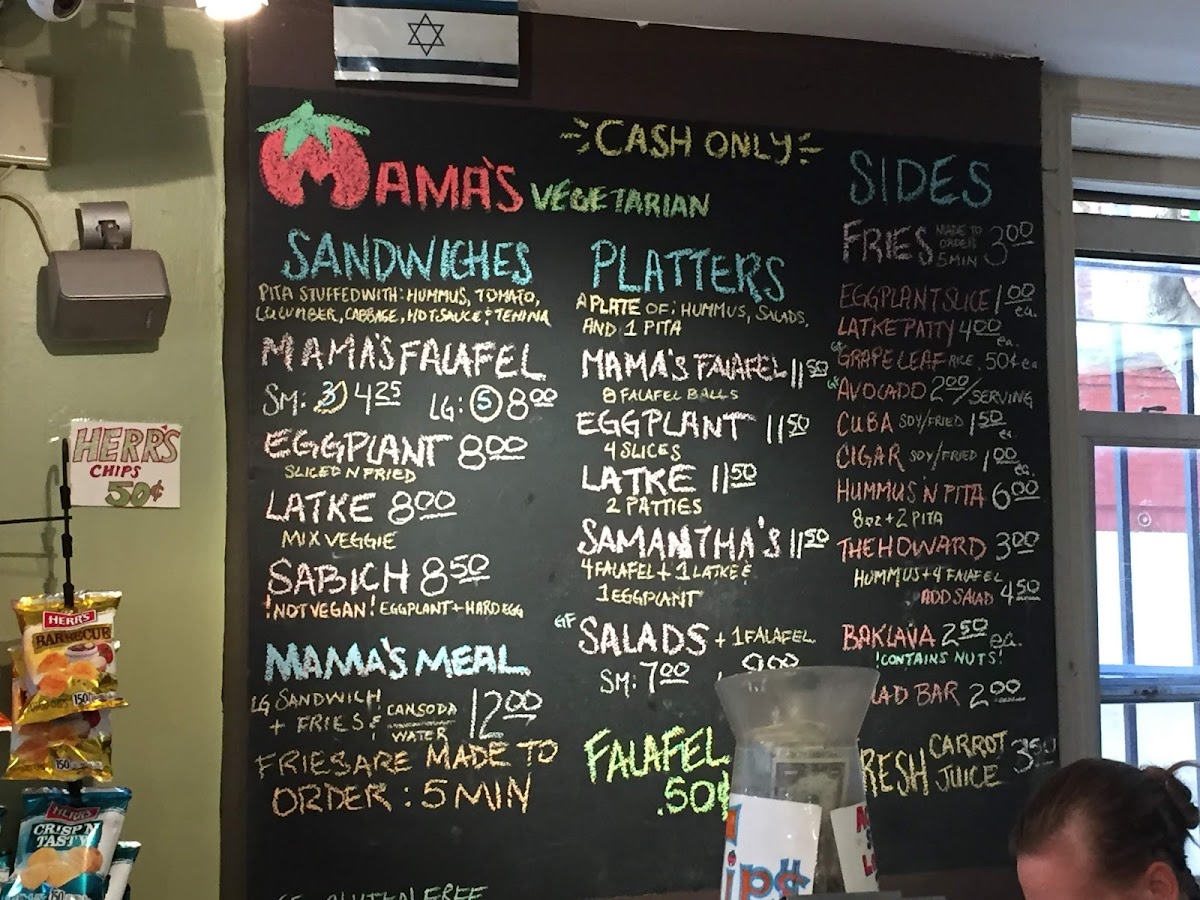 CASH ONLY
MAMA'S VEGETARIAN
SANDWICHES
PITA STUFFED WITH: HUMMUS, TOMATO,
CUCUMBER, CABBAGE, HOT SAUCE & TEHINA
MAMA'S FALAFEL
SM: 3 4 25 LG: 5 8 00
EGGPLANT 8 00
SLICED N FRIED
LATKE 8 00
MIX VEGGIE
SABICH 8 50
!NOT VEGAN! EGGPLANT + HARD EGG
MAMA'S MEAL
LG SANDWICH
+ FRIES & CAN SODA
WATER
12 00
FRIES ARE MADE TO
ORDER: 5 MIN
PLATTERS
A PLATE OF: HUMMUS, SALADS,
AND 1 PITA
MAMA'S FALAFEL 11 50
8 FALAFEL BALLS
EGGPLANT 11 50
4 SLICES
LATKE 11 50
2 PATTIES
SAMANTHA'S 11 50
4 FALAFEL + 1 LATKE &
1 EGGPLANT
GF SALADS + 1 FALAFEL
SM: 7 00 9 00
FALAFEL
.50¢
SIDES
FRIES MADE TO
ORDER
5 MIN
3 00
EGGPLANT SLICE 1 00 ea.
LATKE PATTY 4 00 ea.
GF GRAPE LEAF RICE .50¢ ea
GF AVOCADO 2 00/SERVING
CUBA SOY/FRIED 1 50 ea.
CIGAR SOY/FRIED 1 00 ea.
HUMMUS 'N PITA 6 00
8oz + 2 PITA
THE HOWARD 3 00
HUMMUS + 4 FALAFEL
ADD SALAD 4 50
BAKLAVA 2 50 ea.
!CONTAINS NUTS!
AD BAR 2 00
RESH CARROT
JUICE
3 50
HERR'S
CHIPS
50¢
HERR'S
BARBECUE
HERR'S
CRISP 'N
TASTY
GLUTEN FREE